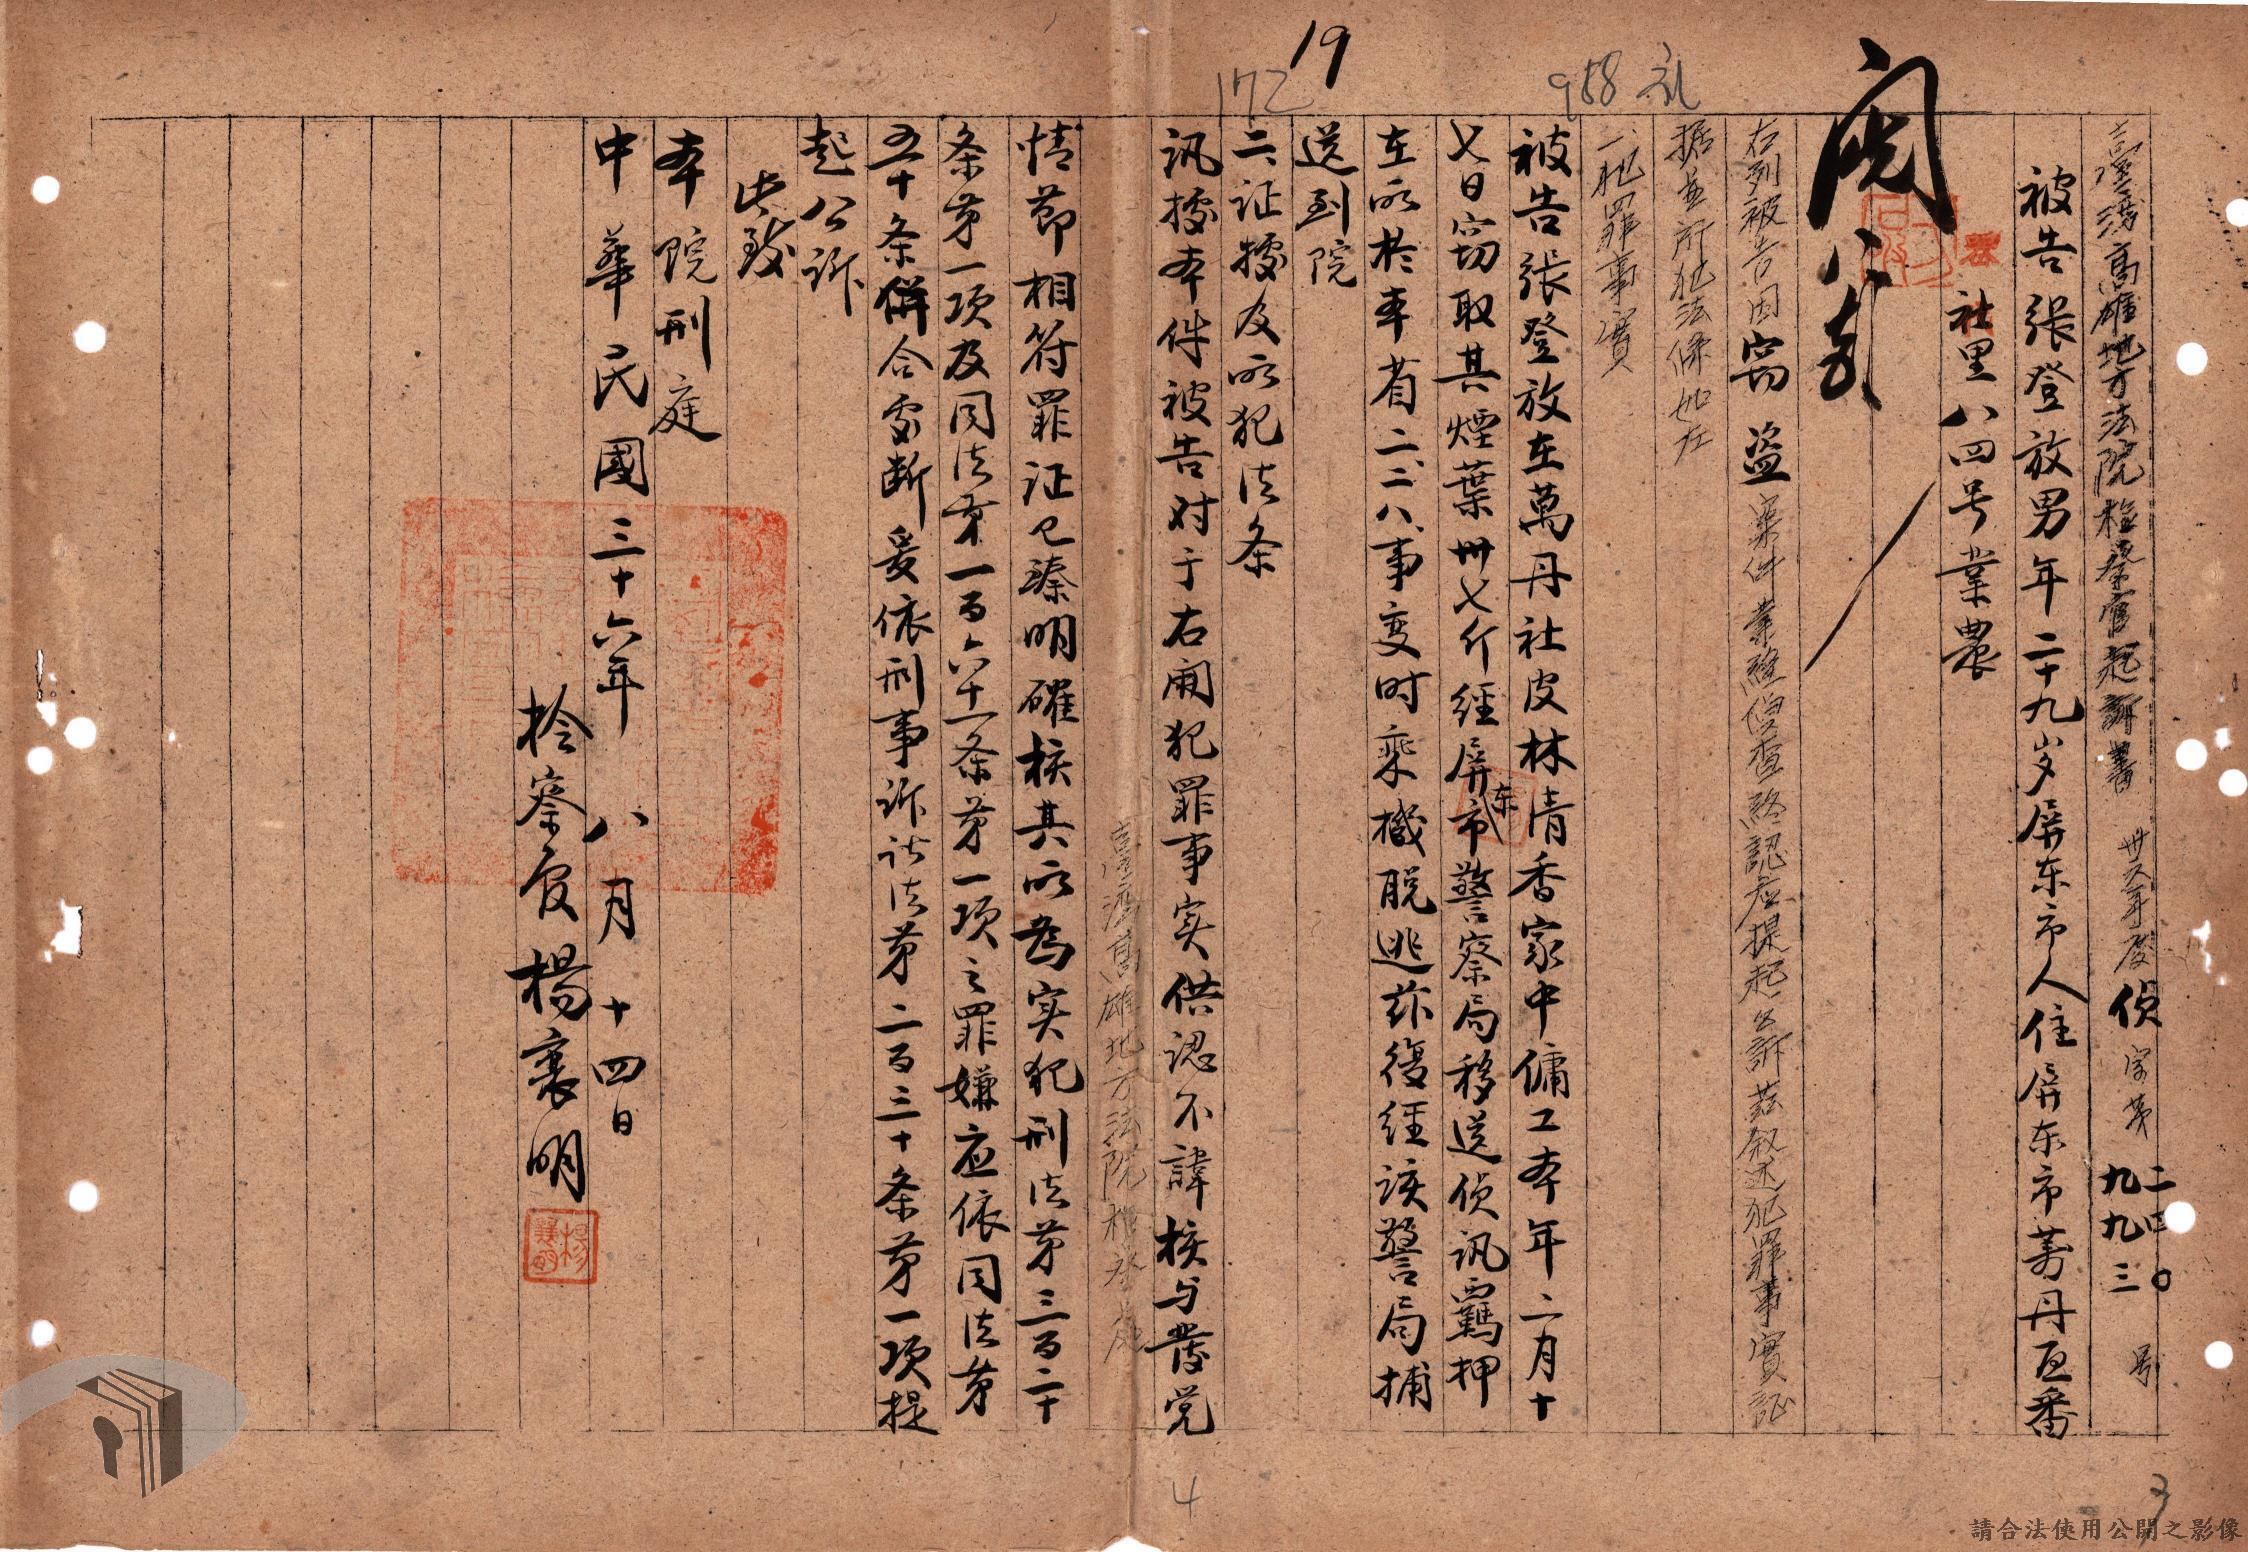 臺灣高雄地方法院檢察官起訴書 卅六年度偵字第二四〇九九三号
被告張登放男年二十九岁屏东市人住屏东市萬丹区番
社里八四号業農
右列被告因窃盗案件業經偵查終認应提起公訴茲叙述犯罪事實証
据並所犯法條如左
一、犯罪事實
被告張登放在萬丹社皮林清香家中傭工本年二月十
七日窃取其煙葉卅七斤經屏东市警察局移送偵訊羈押
在所於本省二、二八、事变时乘機脱逃茲復経该警局捕
送到院
二、证據及所犯法条
訊據本件被告对于右開犯罪事实供認不諱核与發觉
情節相符罪证已臻明確核其所為实犯刑法第三百二十
条第一項及同法第一百六十一条第一項之罪嫌应依同法第
五十条併合處断爰依刑事訴訟法第二百三十条第一項提
起公訴
此致
本院刑庭
中華民國三十六年八月十四日
检察官楊襄明
19
172
958
4
3
臺灣高雄地方法院檢察處
請合法使用公開之影像